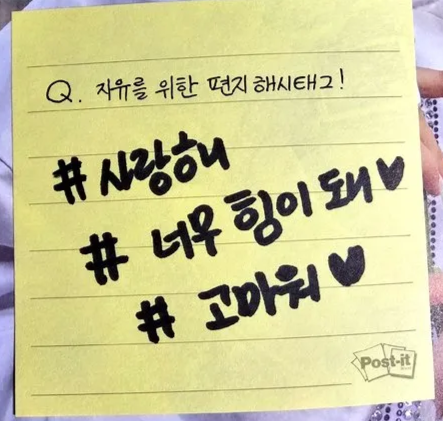 Q. 자유를 위한 편지 해시태그!
# 사랑해
# 너무 힘이 돼♥
# 고마워♥
Post-it